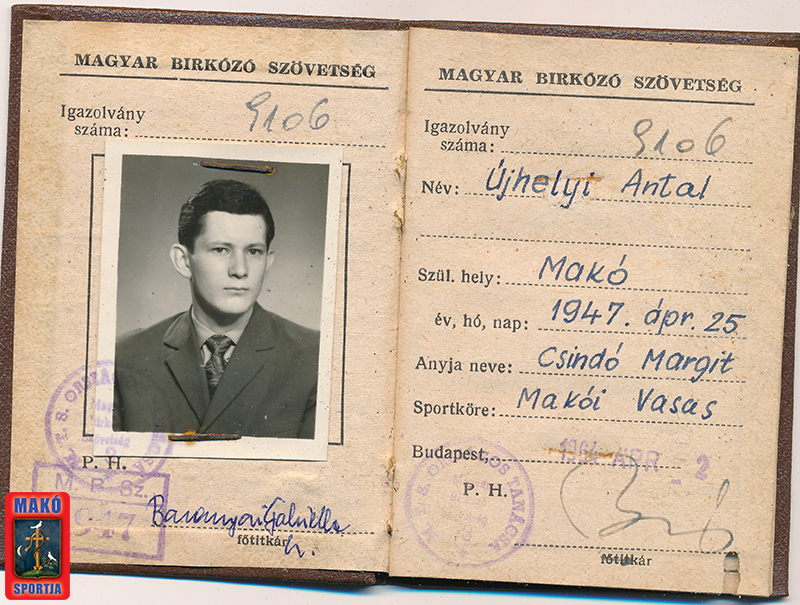 MAGYAR BIRKÓZÓ SZÖVETSÉG
Igazolvány
száma: 9106
P. H.
M. B. Sz.
947
főtitkár
MAKÓ
SPORTJA
MAGYAR BIRKÓZÓ SZÖVETSÉG
Igazolvány
száma: 9106
Név: Újhelyi Antal
Szül. hely: Makó
év, hó, nap: 1947. ápr. 25
Anyja neve: Csindó Margit
Sportköre: Makói Vasas
Budapest, APR 2
P. H.
főtitkár